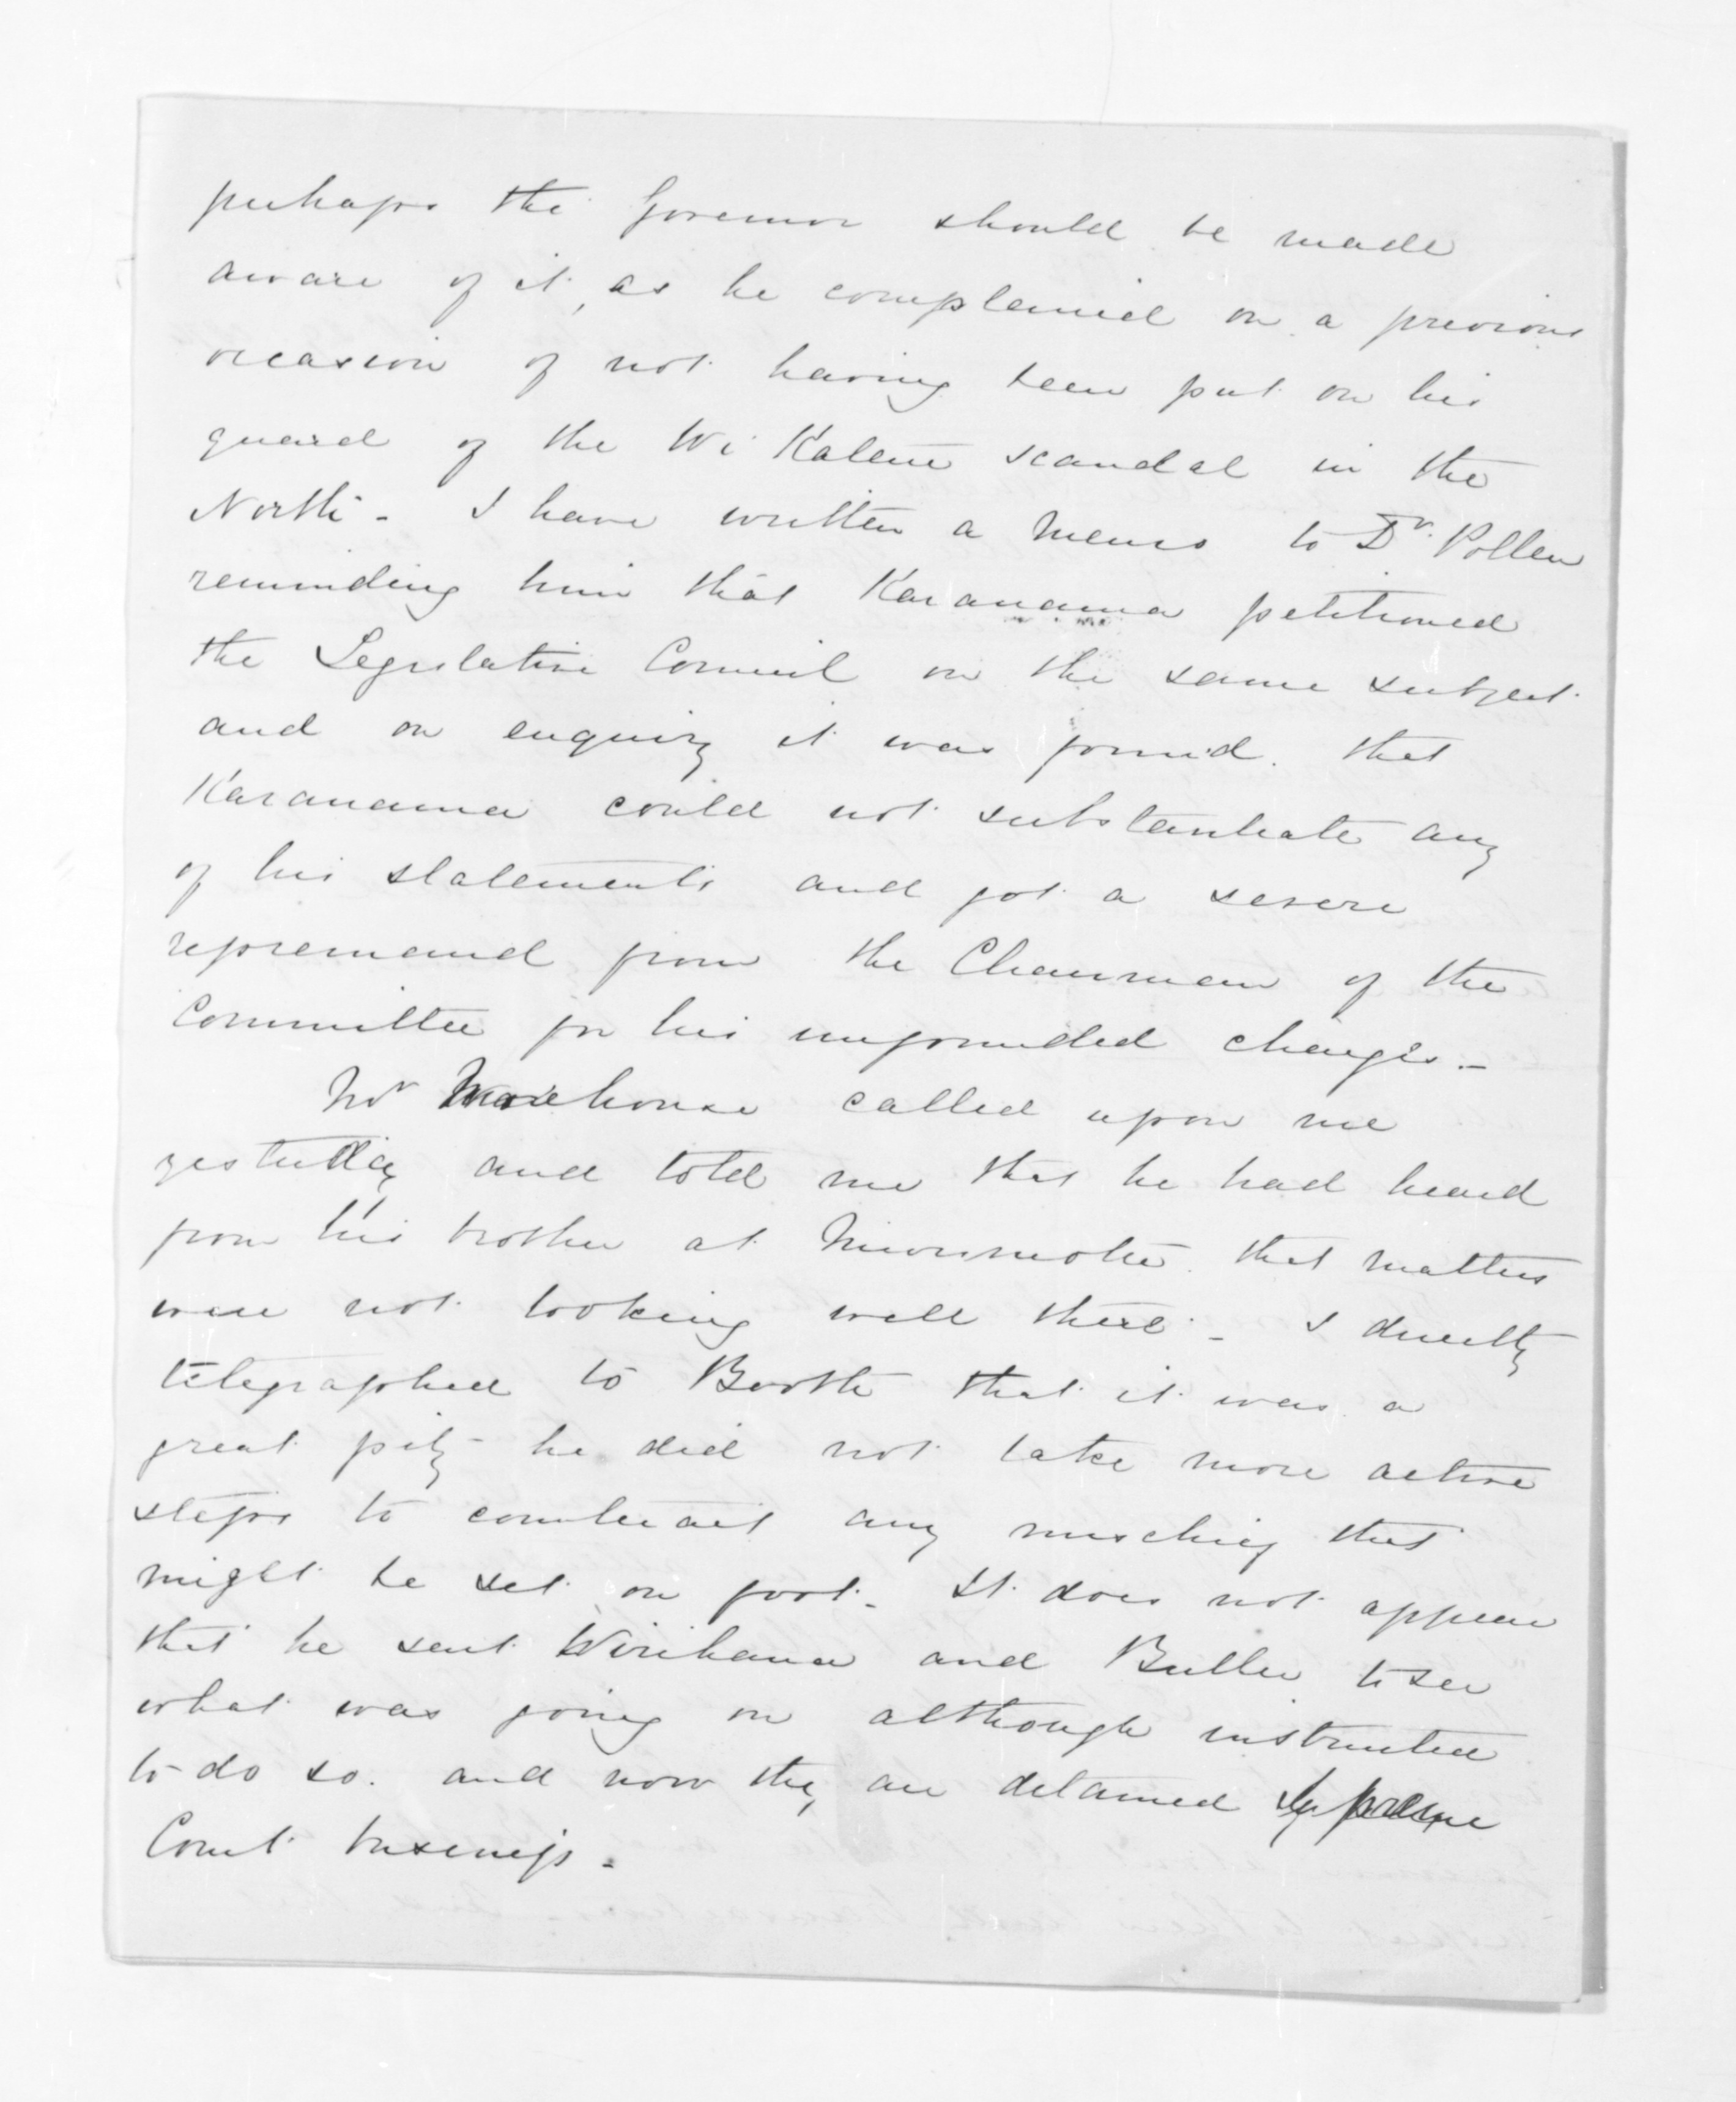 perhaps the Governor should be made
aware of it, as he complained on a previous
occasion of not having been put on his
guard of the Wi Katene scandal in the
North - I have written a memo to Dr. Pollen
reminding him that Karanama petitioned
the Legislative Council on the same subject
and on enquiry it was found that
Karanama could not substantiate any
of his statements and got a severe
repremand from the Chairman of the
Committee for his unfounded charges. -
Mr Morehouse called upon me
yesterday and told me that he had heard
from his brother at Murimotu that matters
were not looking well there - I directly
telegraphed to Booth that it was a
great pity he did not take more active
steps to counteract any mischief that
might be set on foot - It does not appear
that he sent Wirihana and Buller to see
what was going on although instructed
to do so. and now they are detained by Supreme
Court business -